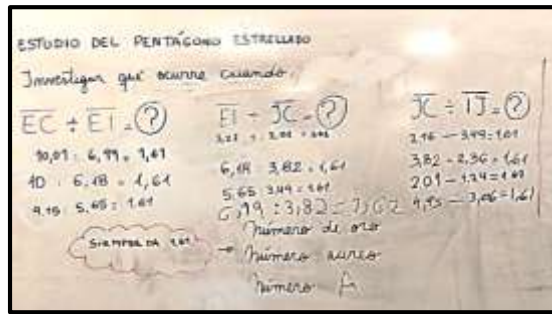 ESTUDIO DEL PENTÁGONO ESTRELLADO
Investigar qué ocurre cuando
EC ÷ EI = ?
10,01 : 6,19 = 1,61
10 : 6,18 = 1,61
9,15 : 5,65 = 1,61
SIEMPRE DA 1,61
EI ÷ JC = ?
6,18 : 3,82 = 1,61
5,65 3,49 = 1,61
6,19 : 3,82 = 1,62
→ Número de oro
Número aureo
Número
JC ÷ IJ = ?
3,82 - 2,36 = 1,61
4,95 - 3,06 = 1,61